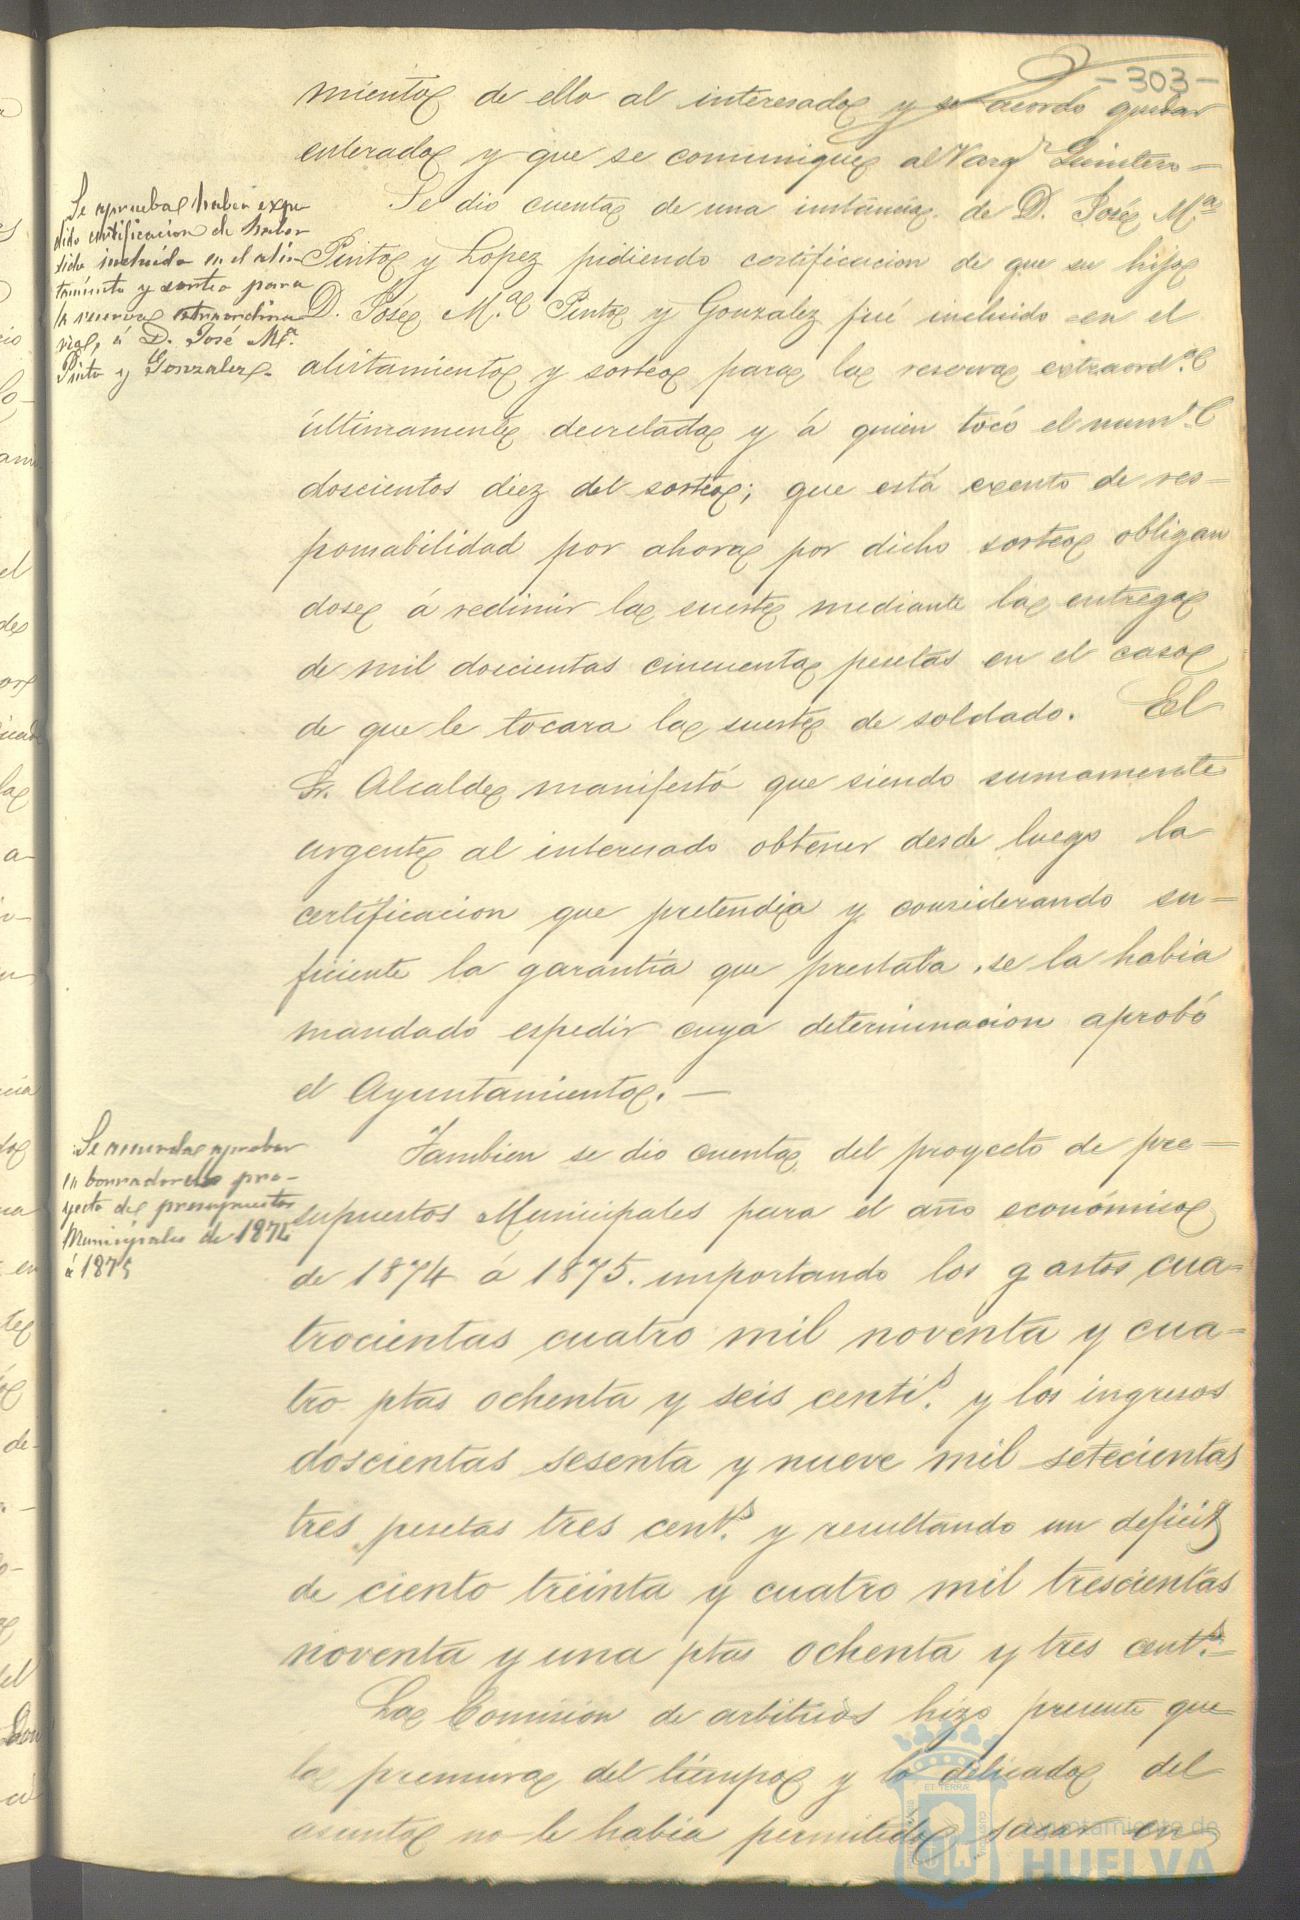 -303-
miento de ello al interesado y se acordo quedar
enterado y que se comunique al Varg.r Quintero—
Se aprueba haber expe-
dido certificacion de haber
sido incluido en el alis-
tamiento y sorteo para
la reserva extraordina
ria, á D. José M.a
Pinto y Gonzalez.
Se dio cuenta de una instancia de D. José M.a
Pinto y Lopez pidiendo certificacion de que su hijo
D. José M.a Pinto y Gonzalez fué incluido en el
alistamiento y sorteo para la reserva extraord.a
últimamente decretada y á quien tocó el num.o
doscientos diez del sorteo; que está exento de res-
ponsabilidad por ahora por dicho sorteo obligan
dose á redimir la suerte mediante la entrega
de mil doscientas cincuenta pesetas en el caso
de que le tocara la suerte de soldado. El
Sr. Alcalde manifestó que siendo sumamente
urgente al interesado obtener desde luego la
certificacion que pretendia y considerando su-
ficiente la garantia que prestaba, se la habia
mandado espedir cuya determinacion aprobó
el Ayuntamiento.—
Se acuerda aprobar
en borrador el pro-
yecto de presupuestos
Municipales de 1874
á 1875
Tambien se dio cuenta del proyecto de pre-
supuestos Municipales para el año económico
de 1874 á 1875. importando los gastos cua-
trocientas cuatro mil noventa y cua-
tro ptas ochenta y seis centi.s y los ingresos
doscientas sesenta y nueve mil setecientas
tres pesetas tres cent.s y resultando un deficit
de ciento treinta y cuatro mil trescientas
noventa y una ptas ochenta y tres cent.s—
La Comision de arbitrios hizo presente que
la premura del tiempo y lo delicado del
asunto no le habia permitido sacar en
Ayuntamiento de
HUELVA